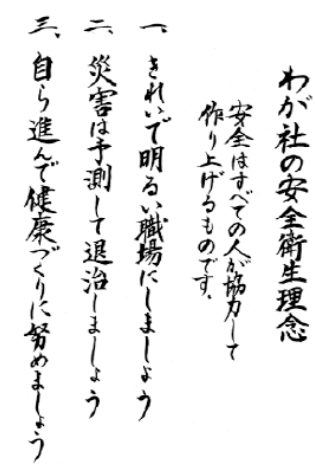 わが社の安全衛生理念
安全はすべての人が協力して
作り上げるものです。
一、きれいで明るい職場にしましょう
二、災害は予測して退治しましょう
三、自ら進んで健康づくりに努めましょう